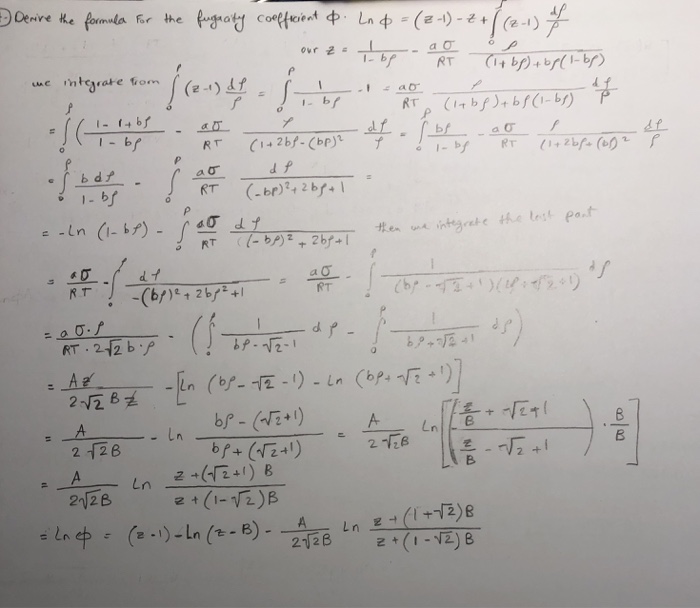 Derive the formula for the fugacity coefficient Φ. Ln Φ = (z-1) - z + ∫₀^ρ (z-1) dρ/ρ
our z = 1/(1-bρ) - aσ/RT ρ/((1+bρ)+bρ(1-bρ))
we integrate from ∫₀^ρ (z-1) dρ/ρ = ∫₀^ρ 1/(1-bρ) - 1 - aσ/RT ρ/((1+bρ)+bρ(1-bρ)) dρ/ρ
= ∫₀^ρ ((1-1+bρ)/(1-bρ) - aσ/RT ρ/(1+2bρ-(bρ)²) dρ/ρ = ∫₀^ρ bρ/(1-bρ) - aσ/RT ρ/(1+2bρ-(bρ)²) dρ/ρ
= ∫₀^ρ b dρ/(1-bρ) - ∫₀^ρ aσ/RT dρ/((-bρ)²+2bρ+1) =
= -Ln (1-bρ) - ∫₀^ρ aσ/RT dρ/((-bρ)²+2bρ+1) then we integrate the last part
= aσ/RT - ∫₀^ρ dρ/(-(bρ)²+2bρ²+1) = aσ/RT - ∫₀^ρ 1/((bρ-√2+1)(bρ+√2+1)) dρ
= aσ·ρ/(RT·2√2 b·ρ) - (∫₀^ρ 1/(bρ-√2-1) dρ - ∫₀^ρ 1/(bρ+√2+1) dρ)
= Az/(2√2 Bz) - [Ln (bρ-√2-1) - Ln (bρ+√2+1)]
= A/(2√2B) - Ln (bρ-(√2+1))/(bρ+(√2+1)) = A/(2√2B) Ln [((z/B+√2+1)/(z/B-√2+1))·B/B]
= A/(2√2B) Ln (z+(√2+1)B)/(z+(1-√2)B)
= Ln Φ = (z-1)-Ln(z-B)- A/(2√2B) Ln (z+(1+√2)B)/(z+(1-√2)B)